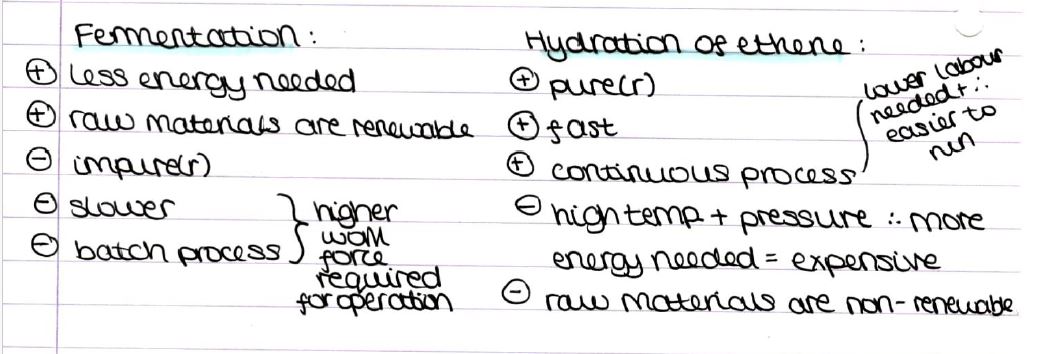 Fermentation:
⊕ less energy needed
⊕ raw materials are renewable
⊖ impure(r)
⊖ slower
⊖ batch process
higher
work
force
required
for operation
Hydration of ethene:
⊕ pure(r)
⊕ fast
⊕ continuous process
lower labour
needed + ∴
easier to
run
⊖ high temp + pressure ∴ more
energy needed = expensive
⊖ raw materials are non-renewable